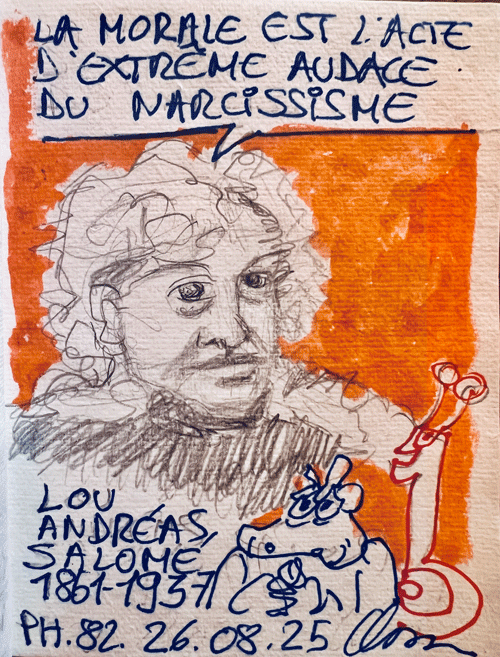 LA MORALE EST L'ACTE
D'EXTRÊME AUDACE
DU NARCISSISME
LOU
ANDRÉAS,
SALOMÉ
1861-1937
PH.82. 26.08.25